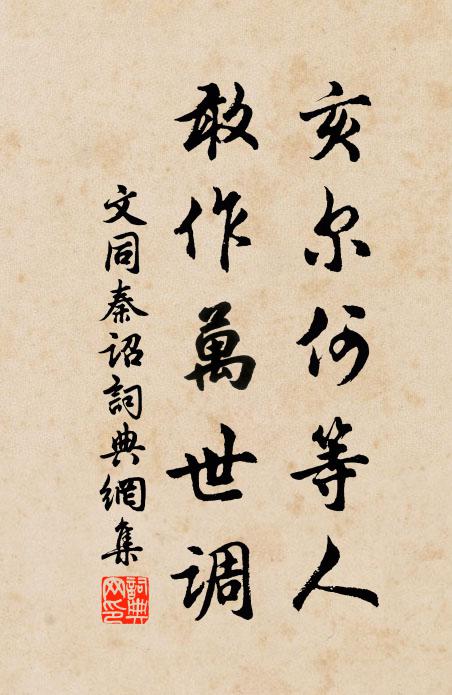 亥尔何等人
敢作萬世调
文同秦诏詞典網集
詞典网印